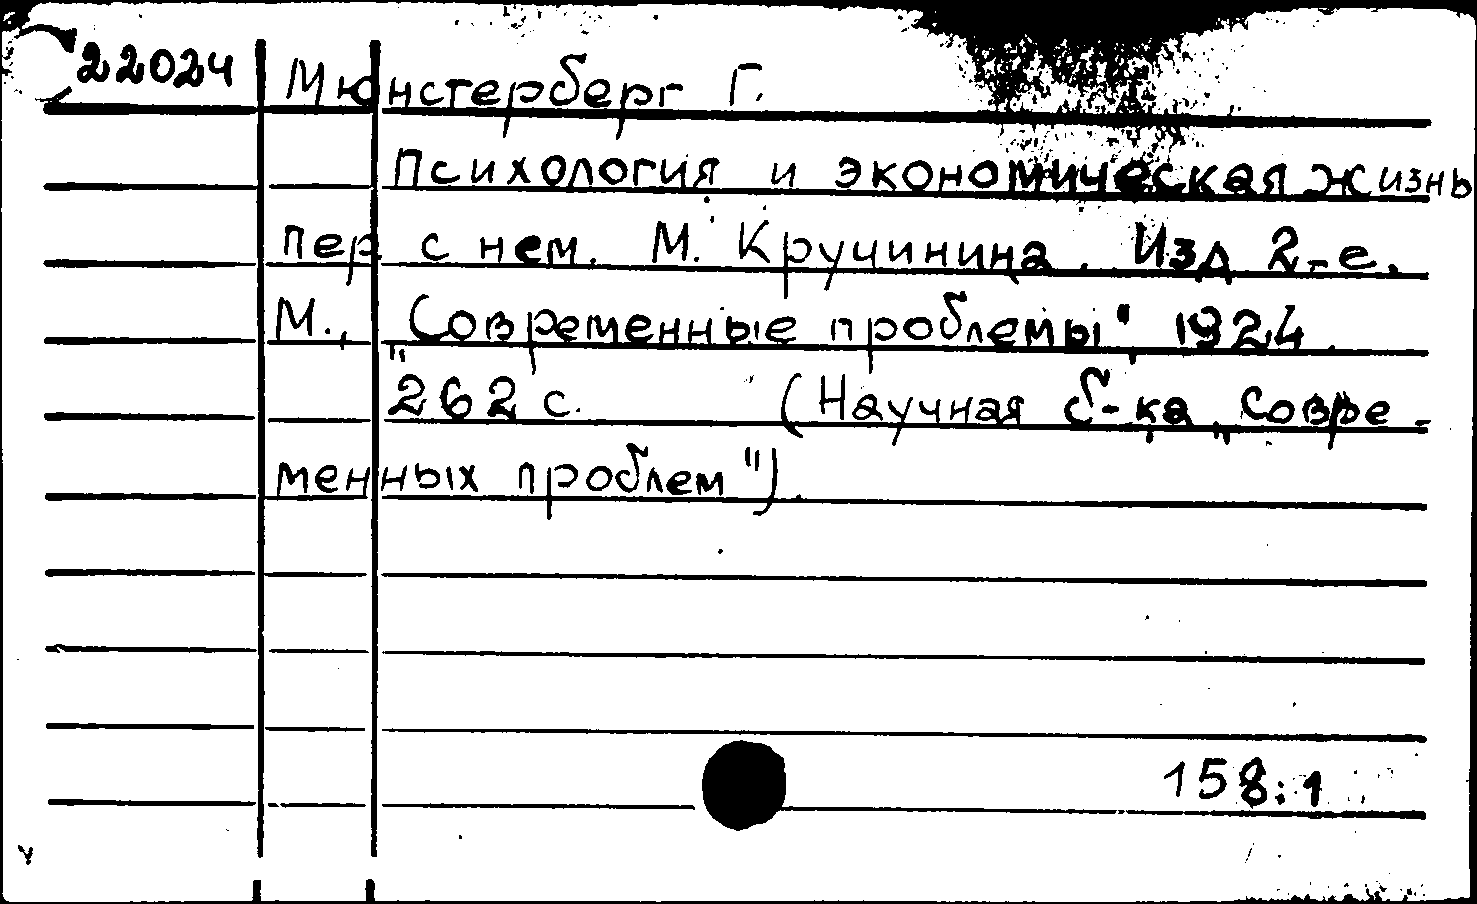 22024 Мюнстерберг Г.
Психология и экономическая жизнь
Пер с нем. М. Кручинина. Изд 2-е.
М., „Современные проблемы", 1924.
262 с. (Научная б-ка „Совре-
менных проблем").
158:1